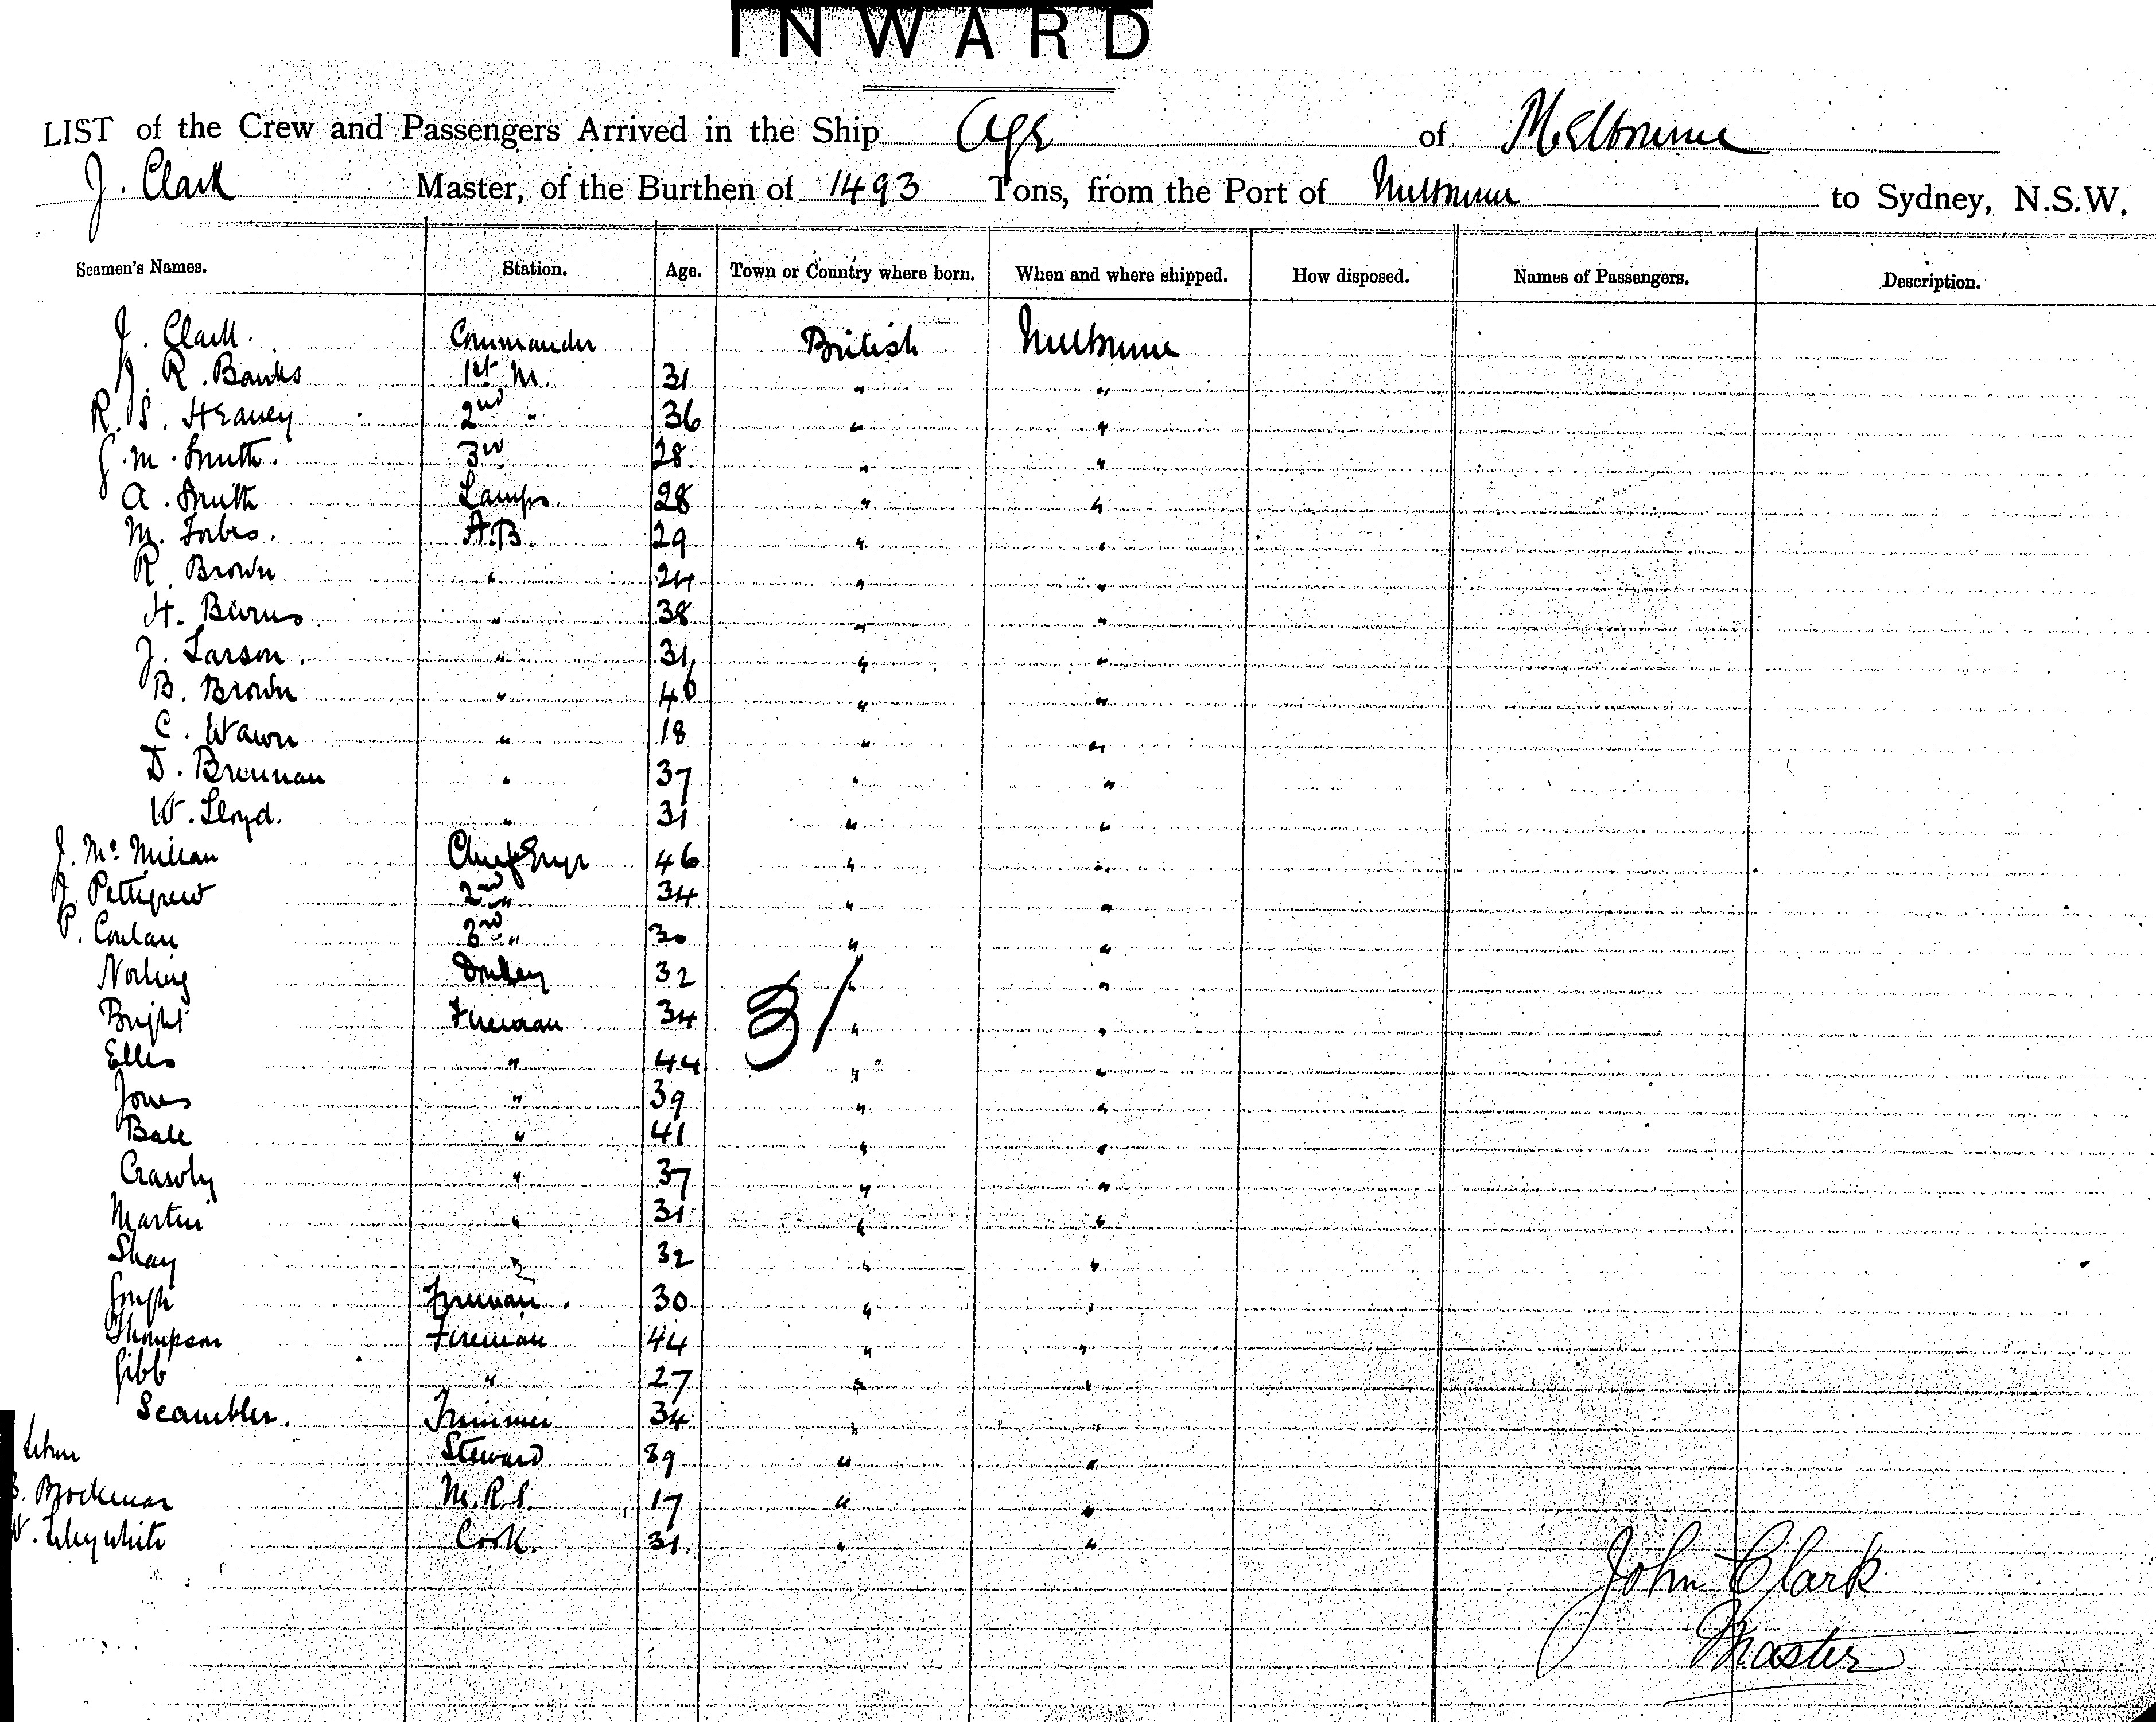 INWARD
LIST of the Crew and Passengers Arrived in the Ship Age of Melbourne
J. Clark Master, of the Burthen of 1493 Tons, from the Port of Melbourne to Sydney, N.S.W.
Seamen's Names. Station. Age. Town or Country where born. When and where shipped. How disposed. Names of Passengers. Description.
J. Clark. Commander British Melbourne
J. R. Banks 1st M. 31 " "
R. S. Heaney 2nd " 36 " "
J. M. Smith. 3rd 28 " "
A. Smith Lamps 28 " "
M. Forbes. A.B. 29 " "
R. Brown " 24 " "
H. Burns " 38 " "
J. Larson. " 31 " "
B. Brown " 46 " "
C. Wawn " 18 " "
D. Brennan " 37 " "
W. Lloyd. " 31 " "
J. McMillan Chief Engr 46 " "
J. Pettigrew 2nd " 34 " "
P. Conlan 3rd " 30 " "
Norling Donkey 32 " "
Bright Fireman 34 " "
31
Ellis " 44 " "
Jones " 39 " "
Ball " 41 " "
Crawly " 37 " "
Martin " 31 " "
Shay " 32 " "
Fireman. 30 " "
Thompson Fireman 44 " "
Gibb " 27 " "
Scambler. Trimmer 34 " "
Steward 39 " "
B. Brockman M.R.S. 17 " "
W. Lilywhite Cook. 31. " "
John Clark
Master